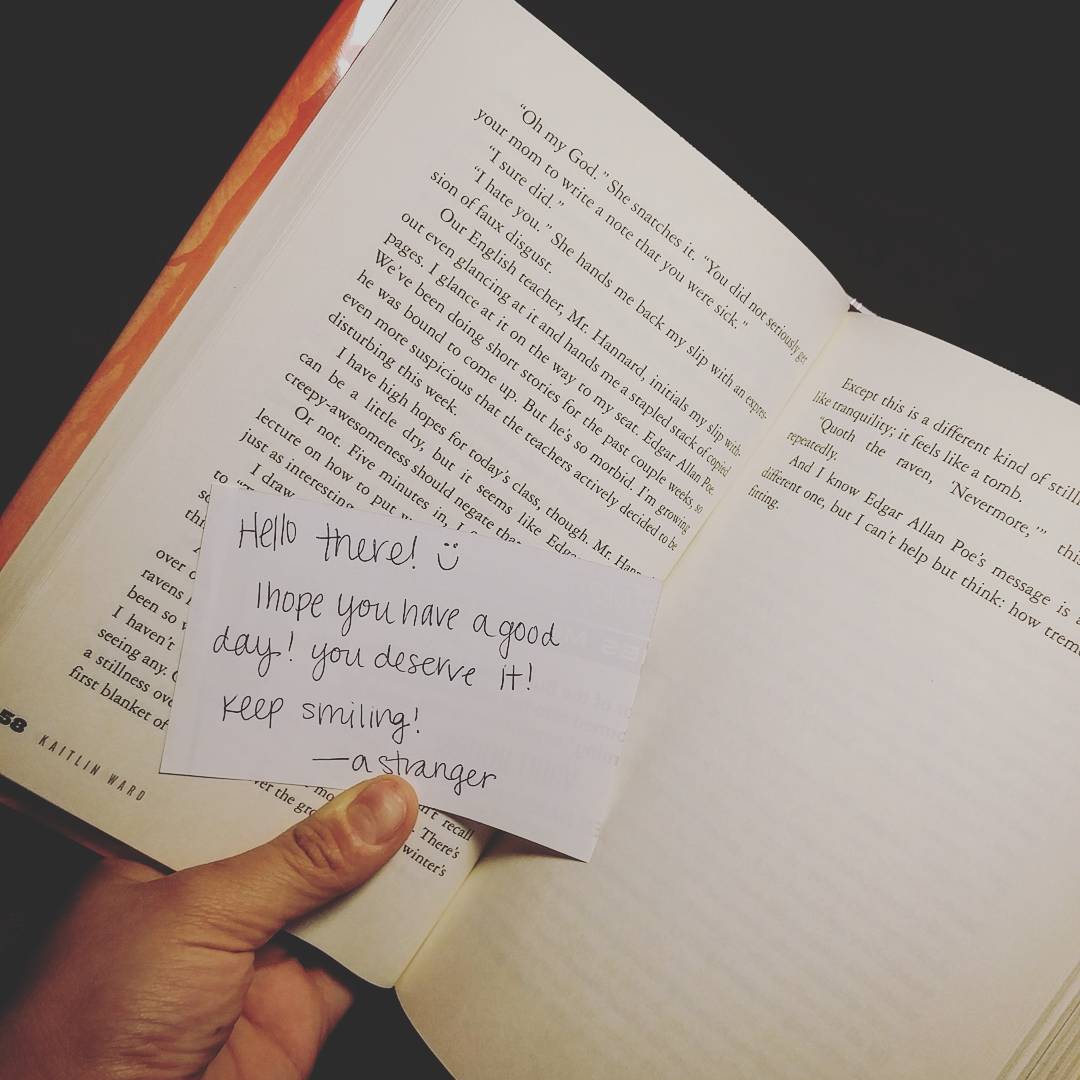 "Oh my God." She snatches it. "You did not seriously get
your mom to write a note that you were sick."
"I sure did."
"I hate you." She hands me back my slip with an expres-
sion of faux disgust.
Our English teacher, Mr. Hannard, initials my slip with-
out even glancing at it and hands me a stapled stack of copied
pages. I glance at it on the way to my seat. Edgar Allan Poe.
We've been doing short stories for the past couple weeks, so
he was bound to come up. But he's so morbid, I'm growing
even more suspicious that the teachers actively decided to be
disturbing this week.
I have high hopes for today's class, though. Mr. Hann
can be a little dry, but it seems like Edga
creepy-awesomeness should negate tha
Or not. Five minutes in, I
lecture on how to put
just as interesting
I draw
to
so
thi
over
ravens
been so
I haven't
seeing any.
a stillness ove
first blanket of
Hello there!
I hope you have a good
day! you deserve it!
Keep smiling!
—a stranger
mo
n't recall
ver the gro
. There's
winter's
58 KAITLIN WARD
Except this is a different kind of still
like tranquility; it feels like a tomb.
"Quoth the raven, 'Nevermore,'" this
repeatedly.
And I know Edgar Allan Poe's message is a
different one, but I can't help but think: how trem
fitting.